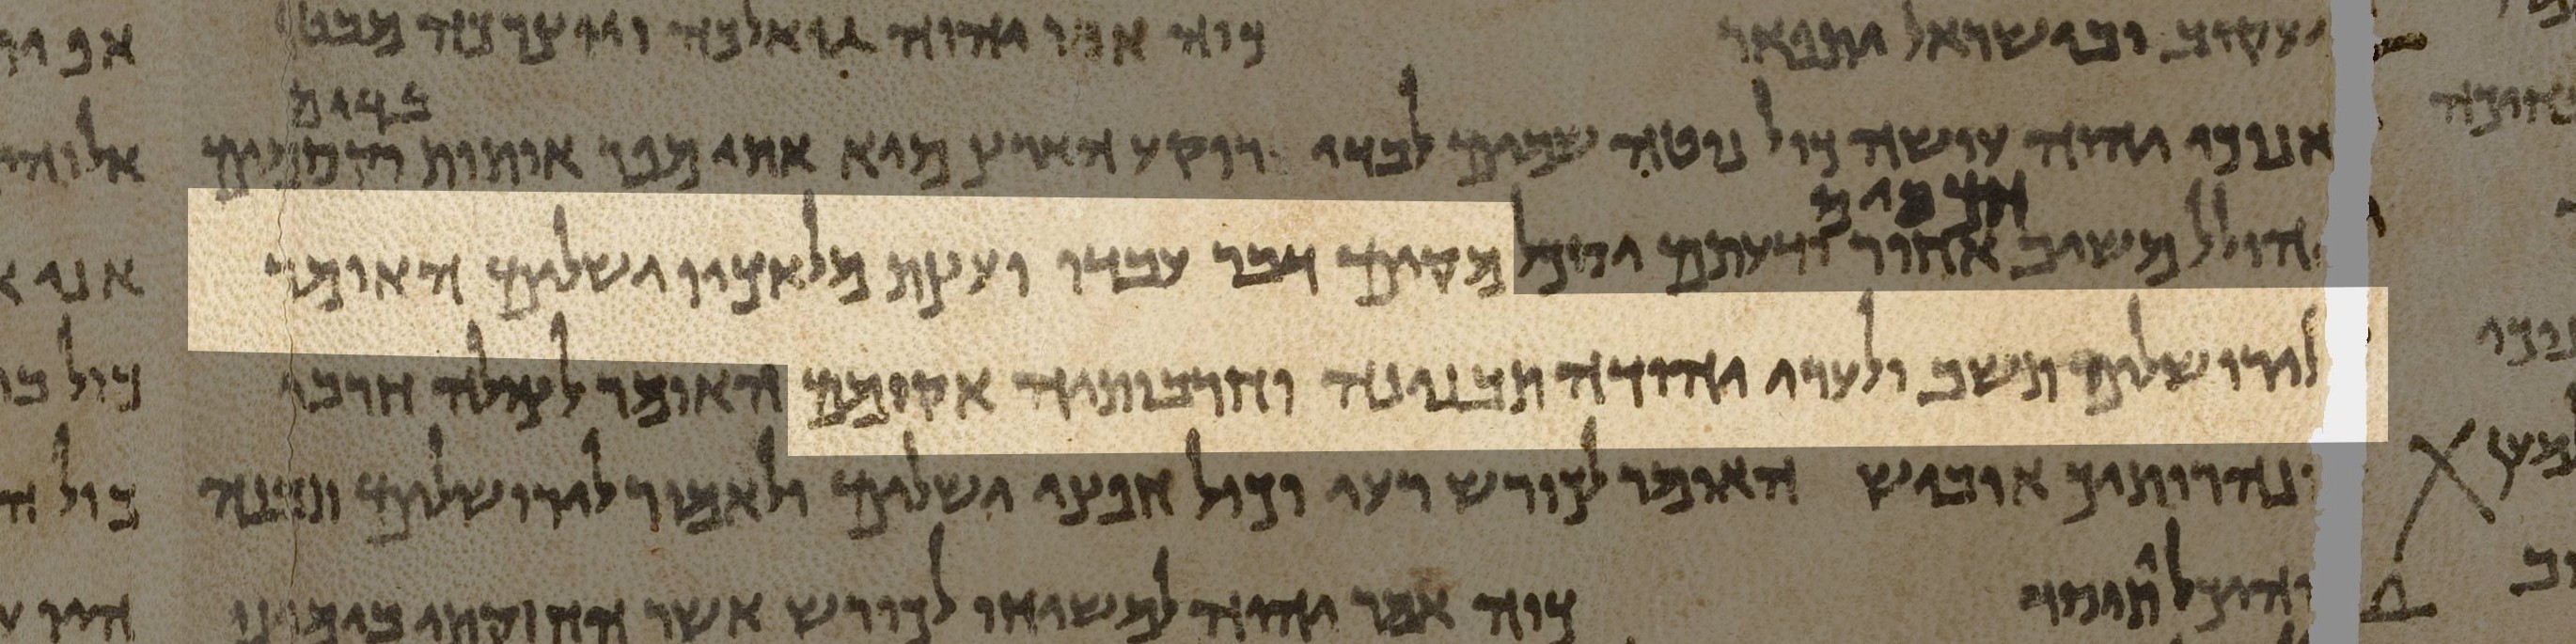 יעקוב ובישראל יתפאר כוה אמר יהוה גואלכה ויוצרכה מבטן
בדים
אנוכי יהוה עושה כול נוטה שמים לבדי רוקע הארץ מיא אתי מפר אותות וקסמים
חכמים
יהולל משיב אחור ודעתם יסכל מקים דבר עבדו ועצת מלאכיו ישלים האומר
לירושלים תשב ולערי יהודה תבנינה וחרבותיה אקומם האומר לצולה חרבי
ונהרותיך אוביש האומר לכורש רעי וכול חפצי ישלים ולאמור לירושלים תבנה
והיכל תיוסד כוה אמר יהוה למשיחו לכורש אשר החזקתי בימינו